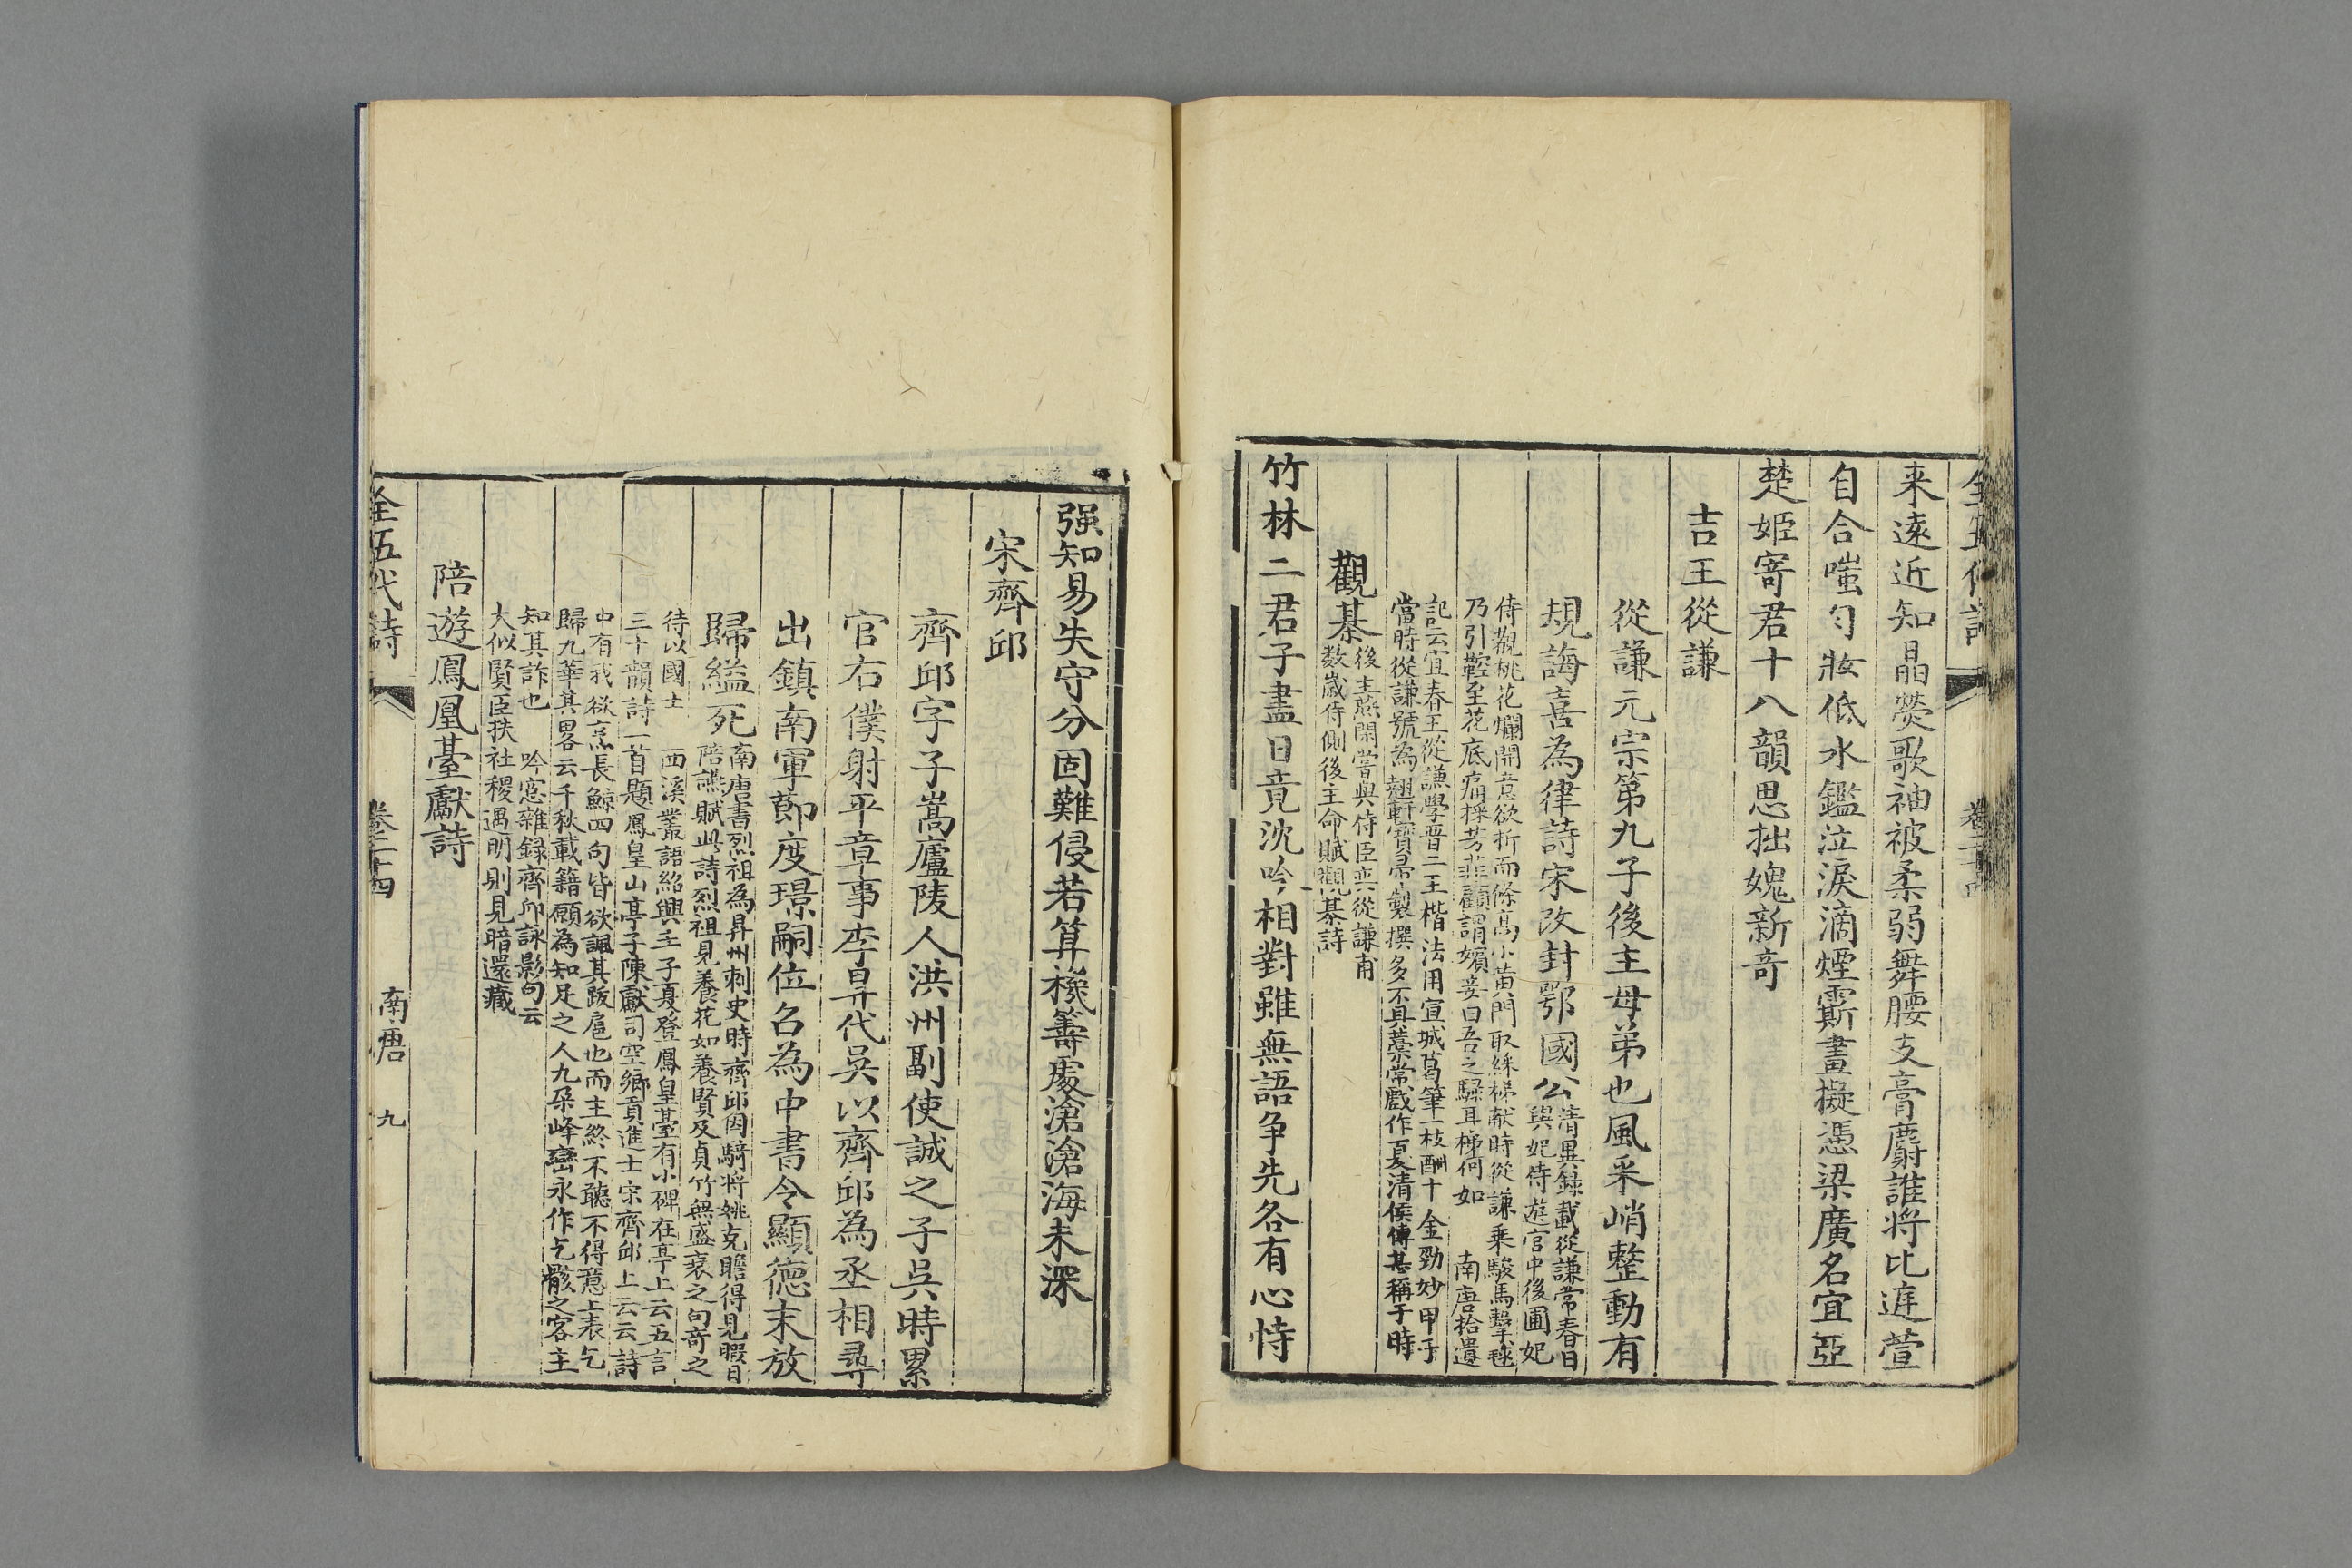 全五代詩
卷二十四
来遠近知晶熒歌袖被柔弱舞腰支膏麝誰將比庭萱
自合嗤勻妝低水鑑泣淚滴煙霏畫擬憑梁廣名宜亞
楚姬寄君十八韻思拙媿新奇
吉王從謙
從謙元宗第九子後主母弟也風采峭整動有
規誨喜為律詩宋改封鄂國公
清異錄載從謙常春日
與妃侍遊宮中後圃妃
侍觀桃花爛開意欲折而條高小黃門取綵梯獻時從謙乗駿馬擊毬
乃引鞚至花底痛採芳菲顧謂嬪妾曰吾之騄耳梯何如　南唐拾遺
記云宜春王從謙學晋二王楷法用宣城葛筆一枝酬十金勁妙甲于
當時從謙號為翹軒寶帚製撰多不具藁常戲作夏清侯傳甚稱于時
觀棊
後主燕閒嘗與侍臣奕從謙甫
数歲侍側後主命賦觀棊詩
竹林二君子盡日竟沈吟相對雖無語争先各有心恃
强知易失守分固難侵若算機籌處滄滄海未深
宋齊邱
齊邱字子嵩廬陵人洪州副使誠之子吳時累
官右僕射平章事李昪代吳以齊邱為丞相尋
出鎮南軍節度璟嗣位召為中書令顯德末放
歸縊死
南唐書烈祖為昇州刺史時齊邱因騎將姚克贍得見暇日
陪讌賦此詩烈祖見養花如養賢及貞竹無盛衰之句奇之
待以國士　西溪叢語紹興壬子夏登鳳皇臺有小碑在亭上云五言
三十韻詩一首題鳳皇山亭子陳獻司空鄉貢進士宋齊邱上云云詩
中有我欲烹長鯨四句皆欲諷其跋扈也而主終不聽不得意上表乞
歸九華其畧云千秋載籍願為知足之人九朶峰巒永作乞骸之客主
知其詐也　吟窓雜録齊邱詠影句云
大似賢臣扶社稷遇明則見暗還藏
陪遊鳳凰臺獻詩
全五代詩
卷二十四
南唐
九